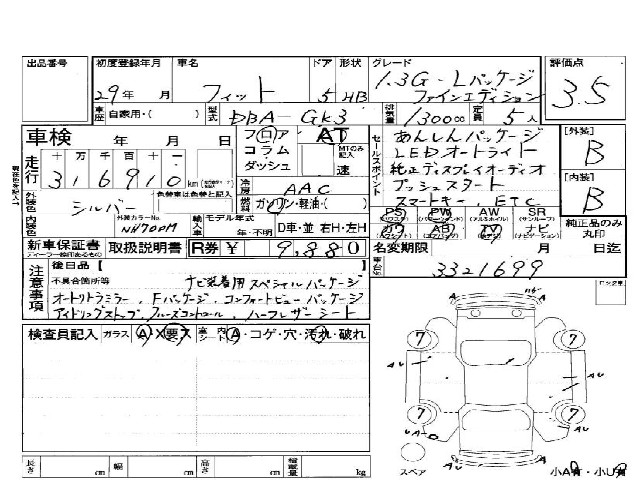 出品番号 初度登録年月 車名 ドア 形状 グレード 評価点
29年 月 フィット 5 HB 1.3G-Lパッケージ
ファインエディション 3.5
車歴 自家用・( ) 型式 DBA-GK3 排気量 1300cc 定員 5人
車検 年 月 日 フロア AT セールスポイント あんしんパッケージ [外装]
走行 十 万 千 百 十 一 コラム MTのみ記入 LEDオートライト B
316910km ダッシュ 速 純正ディスプレイオーディオ [内装]
外装色 色替車は色替と記入 冷房 AAC プッシュスタート B
シルバー 燃料 ガソリン・軽油・( ) スマートキー、ETC
内装色 外装カラーNo. NH700M 輸入車 モデル年式 年・不明 D車・並 右H・左H PS PW AW SR (サンルーフ) 純正品のみ丸印
カワ AB TV ナビ
新車保証書 取扱説明書 R券 ¥ 9,880 名変期限 月 日迄
ディーラー印あるもの
注意事項 後日品【 3321699
不具合箇所等 ナビ装着用スペシャルパッケージ
オートリトラミラー、Fパッケージ、コンフォートビューパッケージ
アイドリングストップ、クルーズコントロール、ハーフレザーシート
検査員記入 ガラス A・X要ス 室内シート A・コゲ・穴・汚れ・破れ
7 7
7 7
スペア 小A・小U
長さ cm 幅 cm 高さ cm 積載量 kg